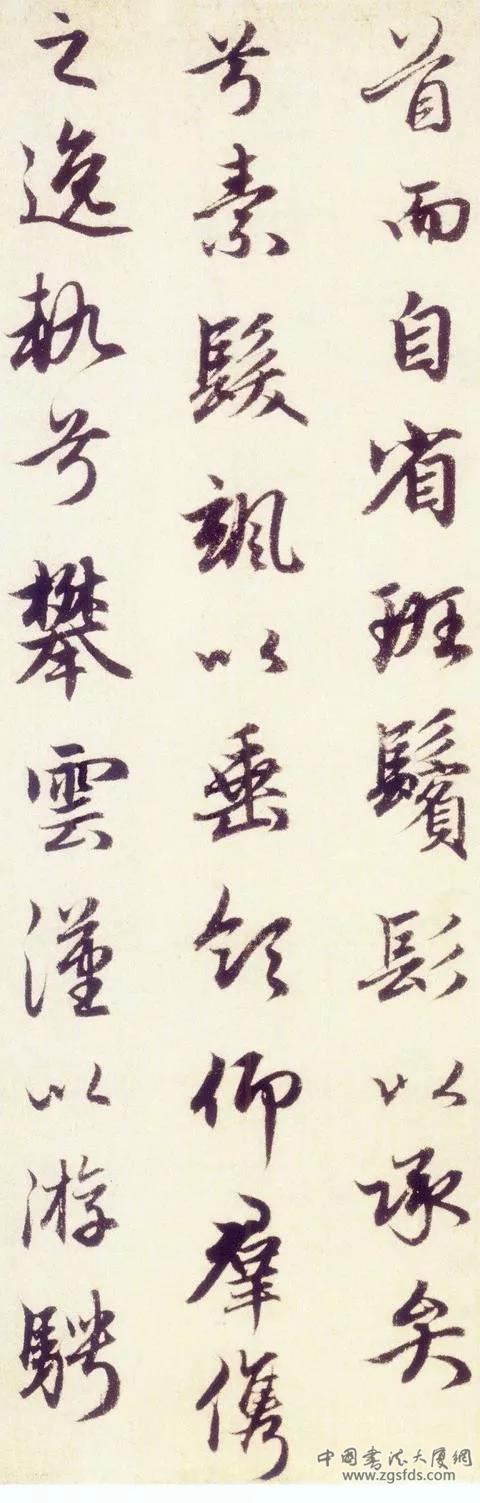 首而自省班鬢髟以承弁
兮素髮颯以垂領仰羣儁
之逸軌兮攀雲漢以游騁
中國書法大廈網
www.zgsfds.com